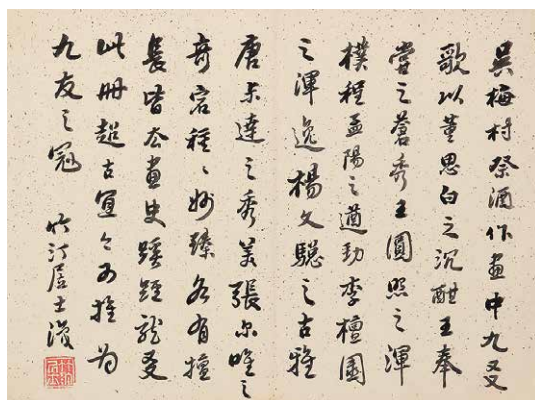 吳梅村祭酒作畫中九友
歌以董思白之沉酣王奉
嘗之蒼秀王圓照之渾
樸程孟陽之遒勁李檀園
之渾逸楊文驄之古雅
唐未達之秀美張尔唯之
奇宕種〻妙臻各有擅
長皆在畫史蹊踁茲叟
此冊超古宜今可推為
九友之冠 竹汀居士識